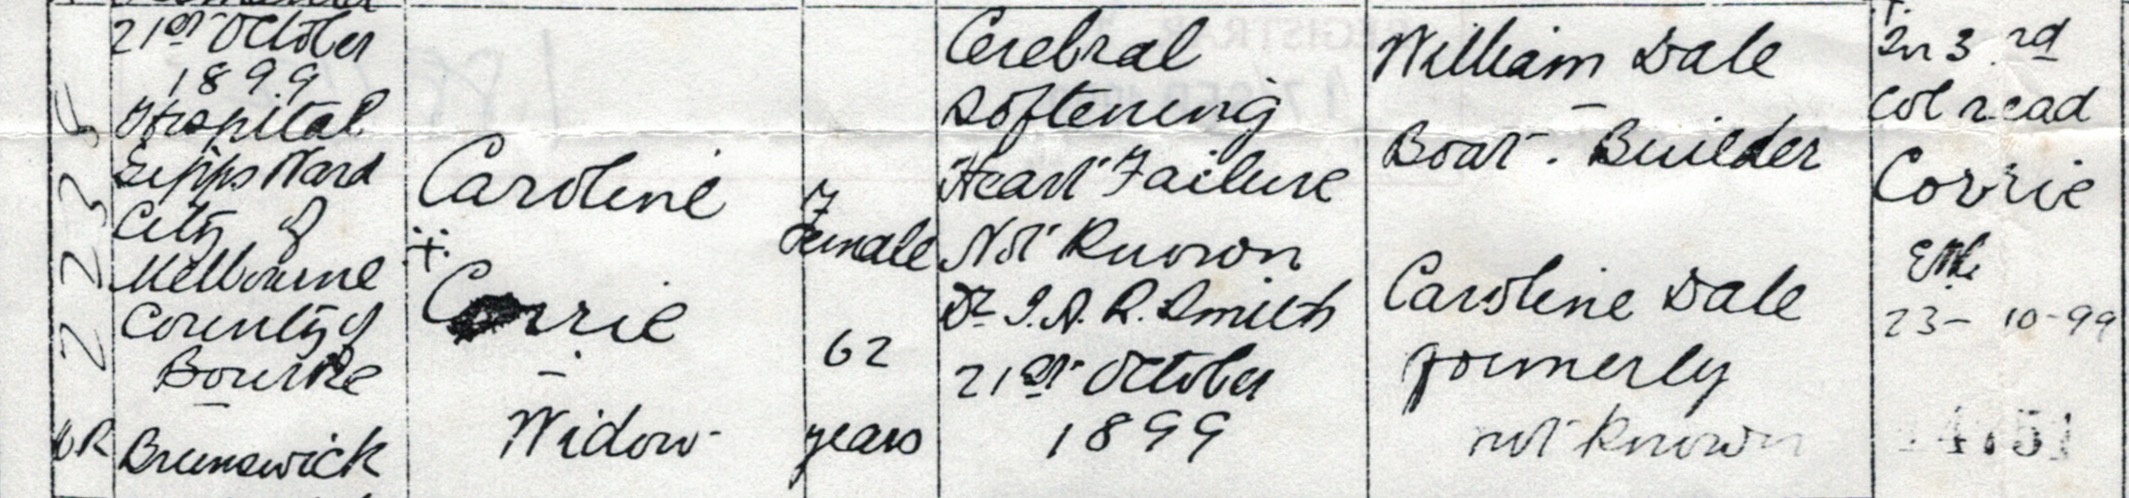 21st October
1899
Hospital
Gipps Ward
City of
Melbourne
County of
Bourke
Brunswick
2235
Caroline
Corrie
Widow
F
Female
62
years
Cerebral
Softening
Heart Failure
Not Known
Dr J. A. R. Smith
21st October
1899
William Dale
Boat-Builder
Caroline Dale
formerly
not known
In 3rd
Col read
Corrie
23-10-99